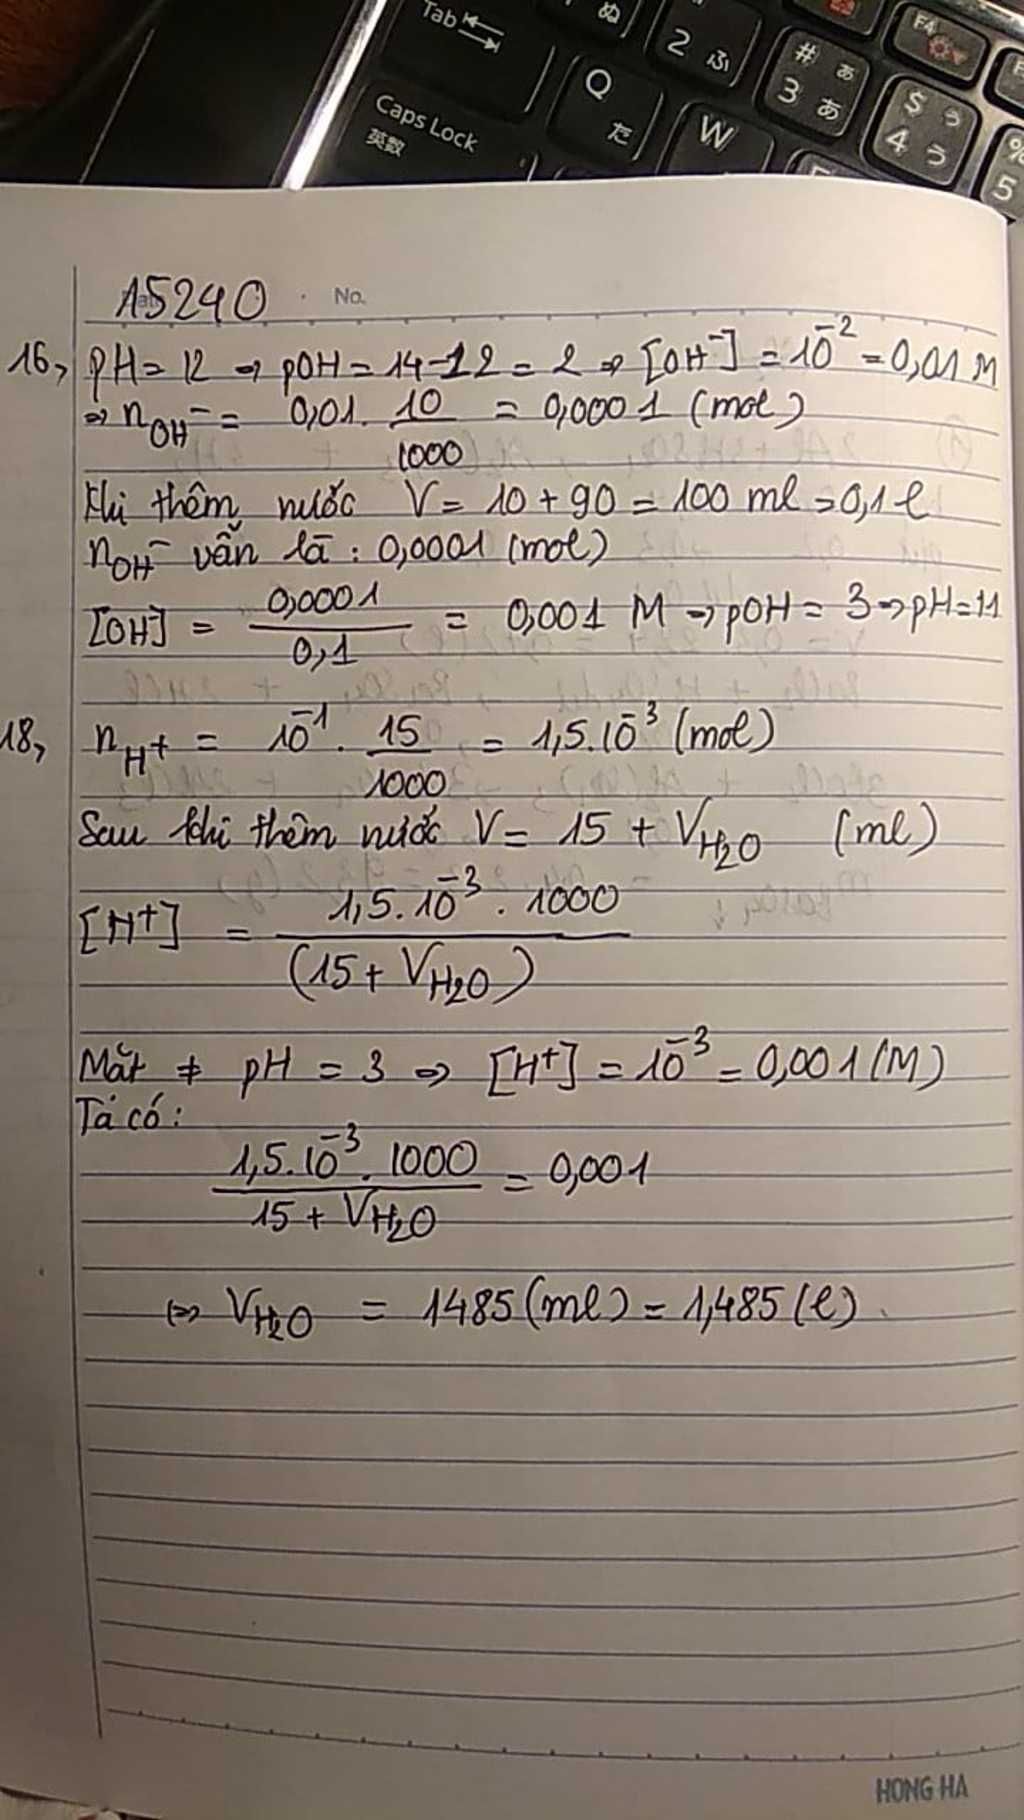 Tab
ぬ
2 ふ
# ぁ
3 あ
F4
$ ぅ
4 う
%
5
Q
た
W
Caps Lock
英数
A5240
No.
16, pH = 12 => pOH = 14-12 = 2 => [OH⁻] = 10⁻² = 0,01 M
=> nOH⁻ = 0,01. 10/1000 = 0,0001 (mol)
Khi thêm nước V = 10 + 90 = 100 ml = 0,1 l
nOH⁻ vẫn là : 0,0001 (mol)
[OH⁻] = 0,0001/0,1 = 0,001 M => pOH = 3 => pH = 11
18, nH⁺ = 10⁻¹ . 15/1000 = 1,5.10⁻³ (mol)
Sau khi thêm nước V = 15 + VH₂O (ml)
[H⁺] = 1,5.10⁻³ . 1000/(15 + VH₂O)
Mặt ≠ pH = 3 => [H⁺] = 10⁻³ = 0,001 (M)
Ta có :
1,5.10⁻³. 1000/15 + VH₂O = 0,001
<=> VH₂O = 1485 (ml) = 1,485 (l).
HONG HA